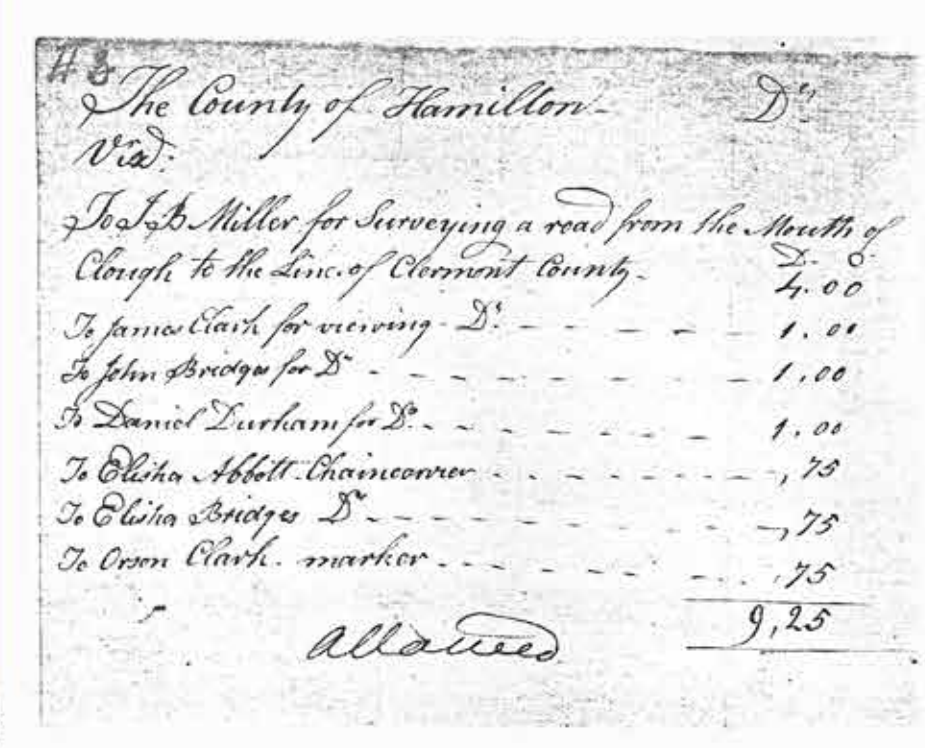 43
The County of Hamilton Dr
Vizd:
To I. B Miller for Surveying a road from the Mouth of
Clough to the Line of Clermont County D. C.
4.00
To James Clark for viewing Do. 1.00
To John Bridges for Do 1.00
To Daniel Durham for Do. 1.00
To Elisha Abbott Chaincarrer ,75
To Elisha Bridges Do ,75
To Orson Clark. marker ,75
9,25
Allowed